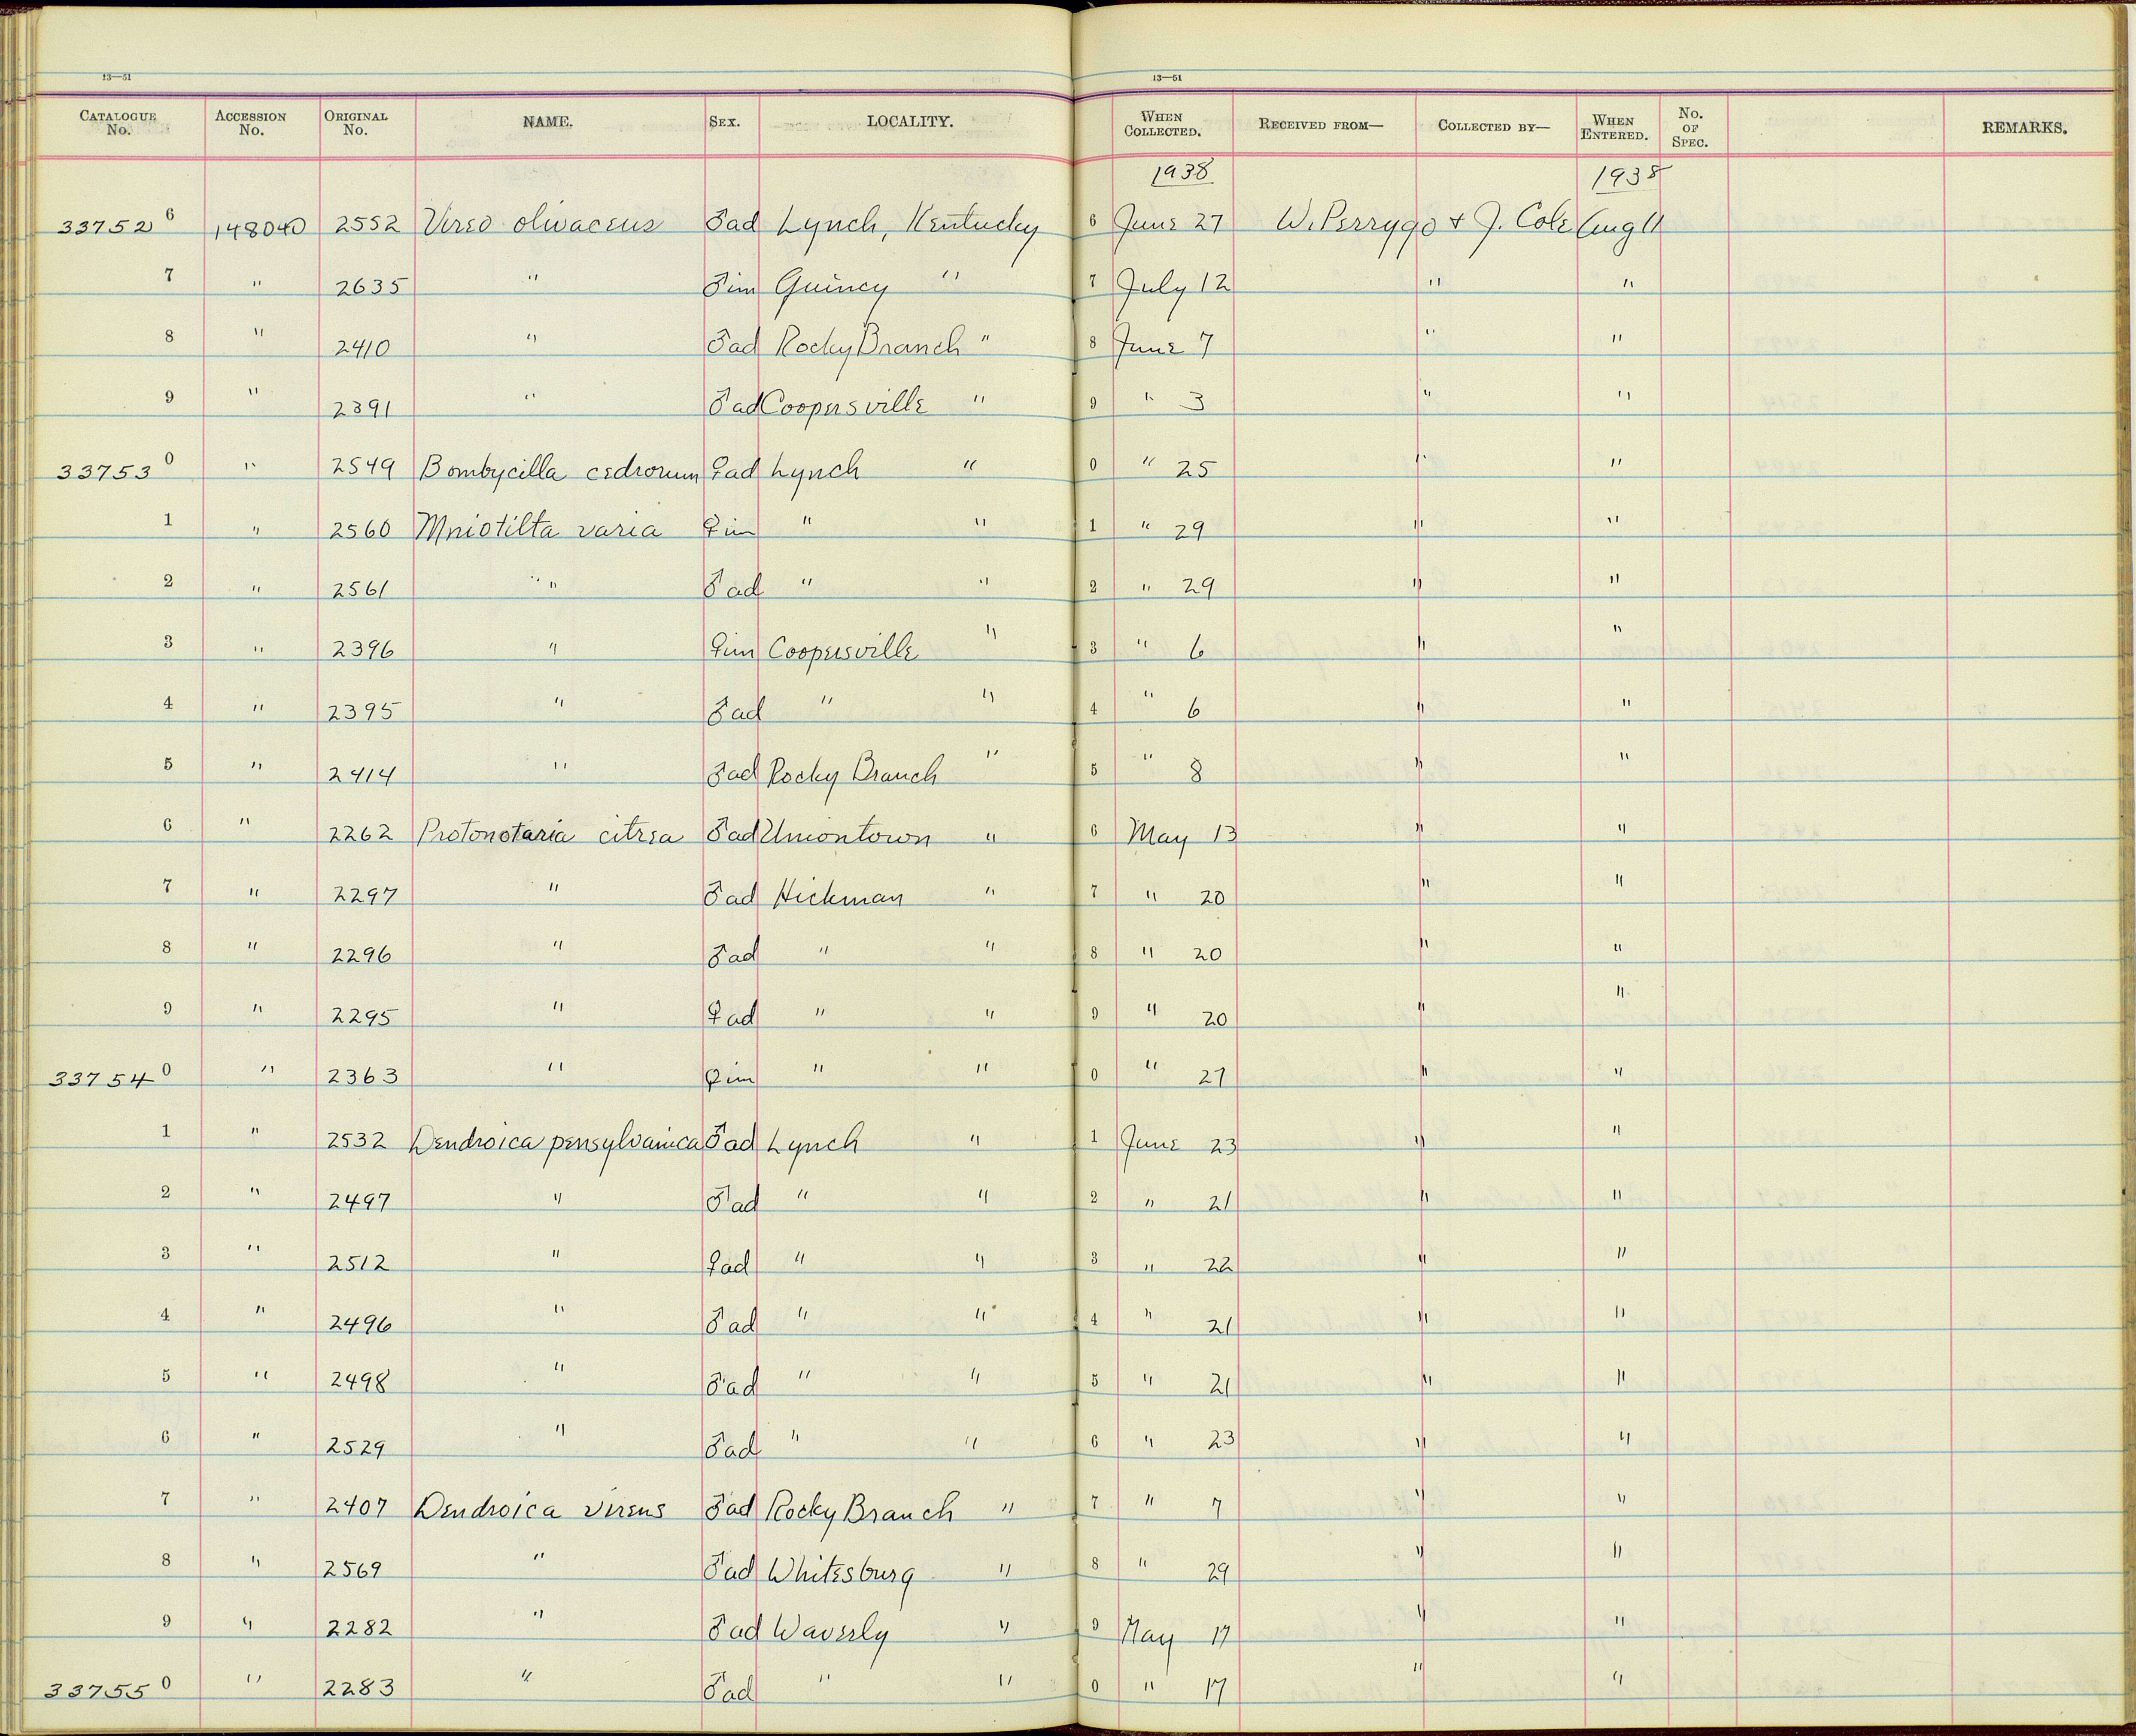 13—51 13—51
CATALOGUE No. ACCESSION No. ORIGINAL No. NAME. SEX. LOCALITY. WHEN COLLECTED. RECEIVED FROM— COLLECTED BY— WHEN ENTERED. No. OF SPEC. REMARKS.
1938 1938
337526 148040 2552 Vireo olivaceus ♂ad Lynch, Kentucky 6 June 27 W. Perrygo & J. Cole Aug 11
7 " 2635 " ♂im Quincy " 7 July 12 " "
8 " 2410 " ♂ad Rocky Branch " 8 June 7 " "
9 " 2391 " ♂ad Coopersville " 9 " 3 " "
337530 " 2549 Bombycilla cedrorum ♀ad Lynch " 0 " 25 " "
1 " 2560 Mniotilta varia ♀im " " 1 " 29 " "
2 " 2561 " " ♂ad " " 2 " 29 " "
3 " 2396 " ♀im Coopersville " 3 " 6 " "
4 " 2395 " ♂ad " " 4 " 6 " "
5 " 2414 " ♂ad Rocky Branch " 5 " 8 " "
6 " 2262 Protonotaria citrea ♂ad Uniontown " 6 May 13 " "
7 " 2297 " ♂ad Hickman " 7 " 20 " "
8 " 2296 " ♂ad " " 8 " 20 " "
9 " 2295 " ♀ad " " 9 " 20 " "
337540 " 2363 " ♀im " " 0 " 27 " "
1 " 2532 Dendroica pensylvanica ♂ad Lynch " 1 June 23 " "
2 " 2497 " ♂ad " " 2 " 21 " "
3 " 2512 " ♀ad " " 3 " 22 " "
4 " 2496 " ♂ad " " 4 " 21 " "
5 " 2498 " ♂ad " " 5 " 21 " "
6 " 2529 " ♂ad " " 6 " 23 " "
7 " 2407 Dendroica virens ♂ad Rocky Branch " 7 " 7 " "
8 " 2569 " ♂ad Whitesburg " 8 " 29 " "
9 " 2282 " ♂ad Waverly " 9 May 17 " "
337550 " 2283 " ♂ad " " 0 " 17 " "